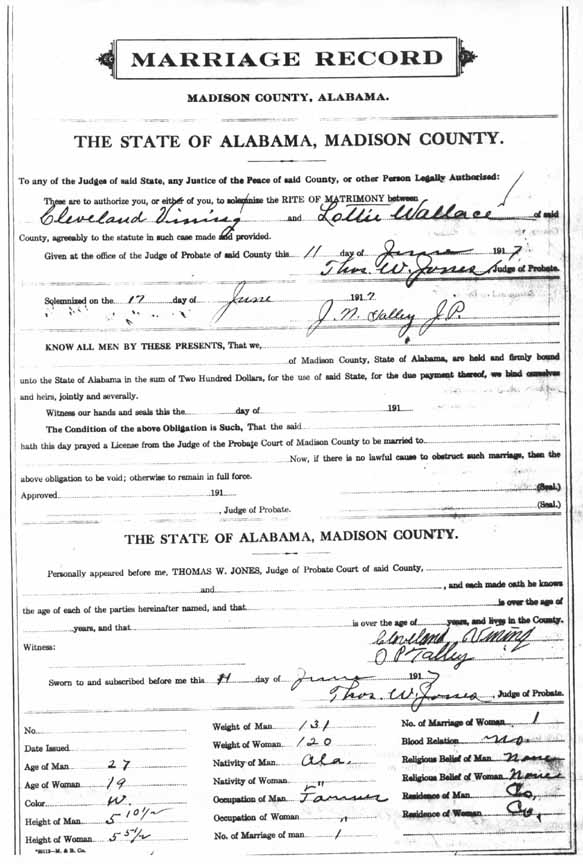 MARRIAGE RECORD
MADISON COUNTY, ALABAMA.
THE STATE OF ALABAMA, MADISON COUNTY.
To any of the Judges of said State, any Justice of the Peace of said County, or other Person Legally Authorized:
These are to authorize you, or either of you, to solemnize the RITE OF MATRIMONY between
Cleveland Vining and Lottie Wallace of said
County, agreeably to the statute in such case made and provided.
Given at the office of the Judge of Probate of said County this 11 day of June 1917
Thos. W. Jones Judge of Probate.
Solemnized on the 17 day of June 1917
J. N. Talley J.P.
KNOW ALL MEN BY THESE PRESENTS, That we,
of Madison County, State of Alabama, are held and firmly bound
unto the State of Alabama in the sum of Two Hundred Dollars, for the use of said State, for the due payment thereof, we bind ourselves
and heirs, jointly and severally.
Witness our hands and seals this the day of 191
The Condition of the above Obligation is Such, That the said
hath this day prayed a License from the Judge of the Probate Court of Madison County to be married to
Now, if there is no lawful cause to obstruct such marriage, then the
above obligation to be void; otherwise to remain in full force.
Approved 191 (Seal.)
, Judge of Probate. (Seal.)
THE STATE OF ALABAMA, MADISON COUNTY.
Personally appeared before me, THOMAS W. JONES, Judge of Probate Court of said County,
and , and each made oath he knows
the age of each of the parties hereinafter named, and that is over the age of
years, and that is over the age of years, and lives in the County.
Cleveland Vining
Witness: O P Talley
Sworn to and subscribed before me this 11 day of June 1917
Thos. W. Jones, Judge of Probate.
No. Weight of Man 131 No. of Marriage of Woman 1
Date Issued Weight of Woman 120 Blood Relation no.
Age of Man 27 Nativity of Man Ala. Religious Belief of Man None
Age of Woman 19 Nativity of Woman " Religious Belief of Woman None
Color W. Occupation of Man Farmer Residence of Man Co,
Height of Man 5 10 1/2 Occupation of Woman " Residence of Woman Co,
Height of Woman 5 5 1/2 No. of Marriage of man 1